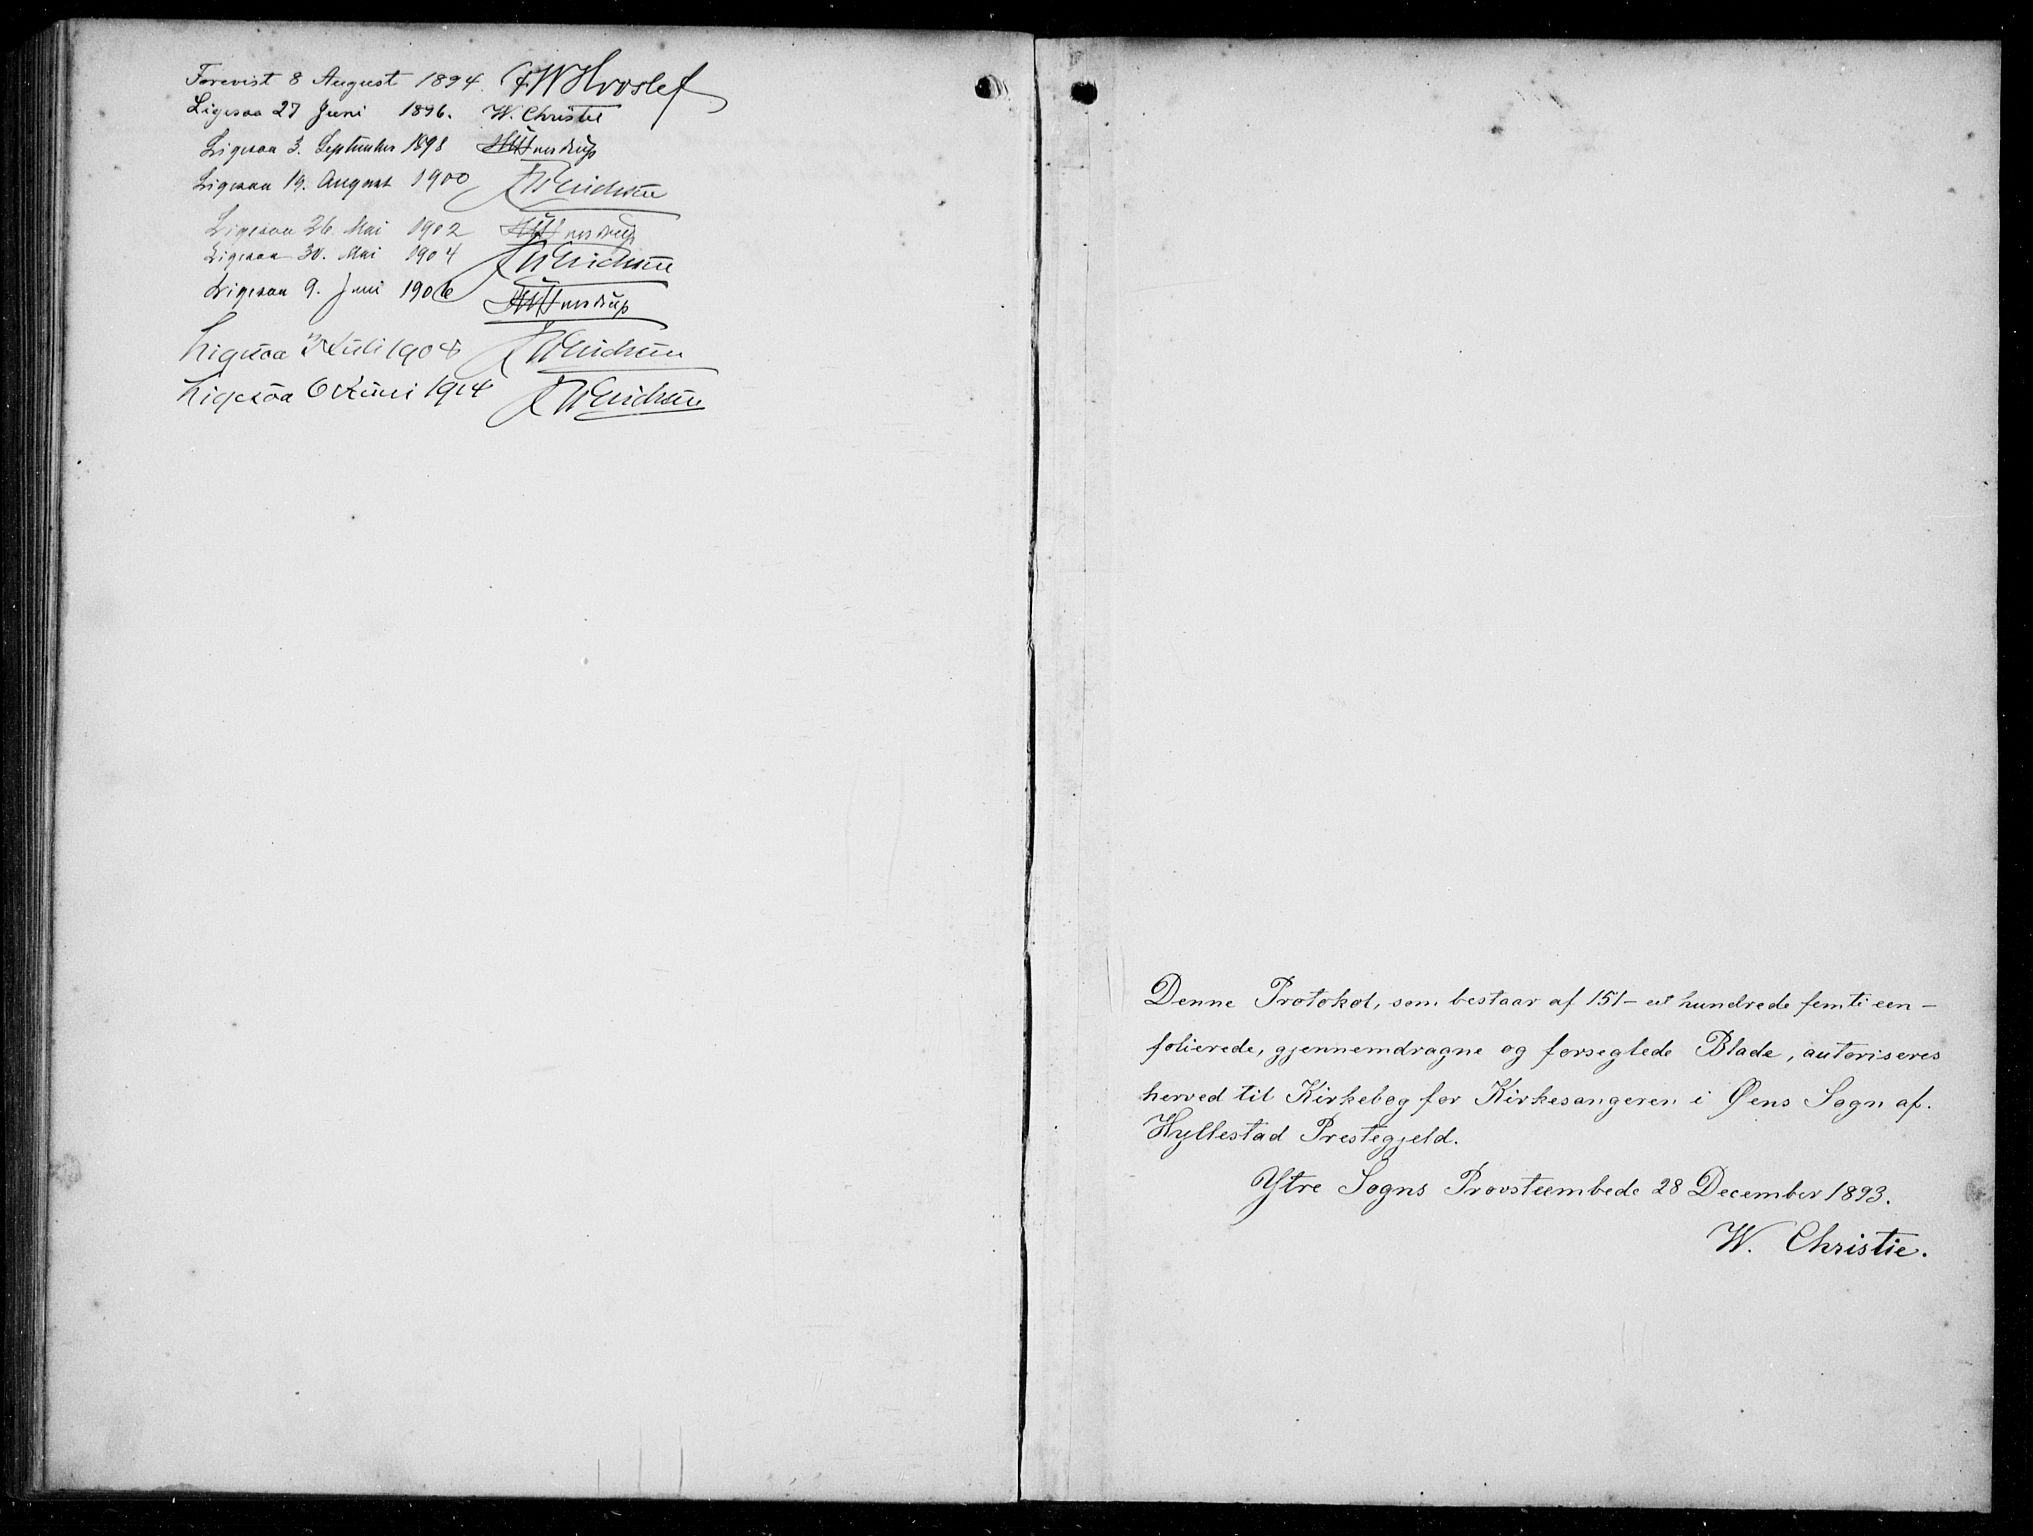 Forevist 8 August 1894. FWHvoslef
Ligesaa 27 Juni 1896. W. Christie
Ligesaa 3. September 1898
Ligesaa 19. August 1900 Erichsen
Ligesaa 26. Mai 1902
Ligesaa 30. Mai 1904 Erichsen
Ligesaa 9. Juni 1906
Ligesaa Juli 1908 Erichsen
Ligesaa 6 Juni 1914 Erichsen
Denne Protokol, som bestaar af 151 – et hundrede femti een –
folierede, gjennemdragne og forseglede Blade, autoriseres
herved til Kirkebog for Kirkesangeren i Øens Sogn af.
Hyllestad Prestegjeld.
Ytre Sogns Provsteembede 28 December 1893.
W. Christie.